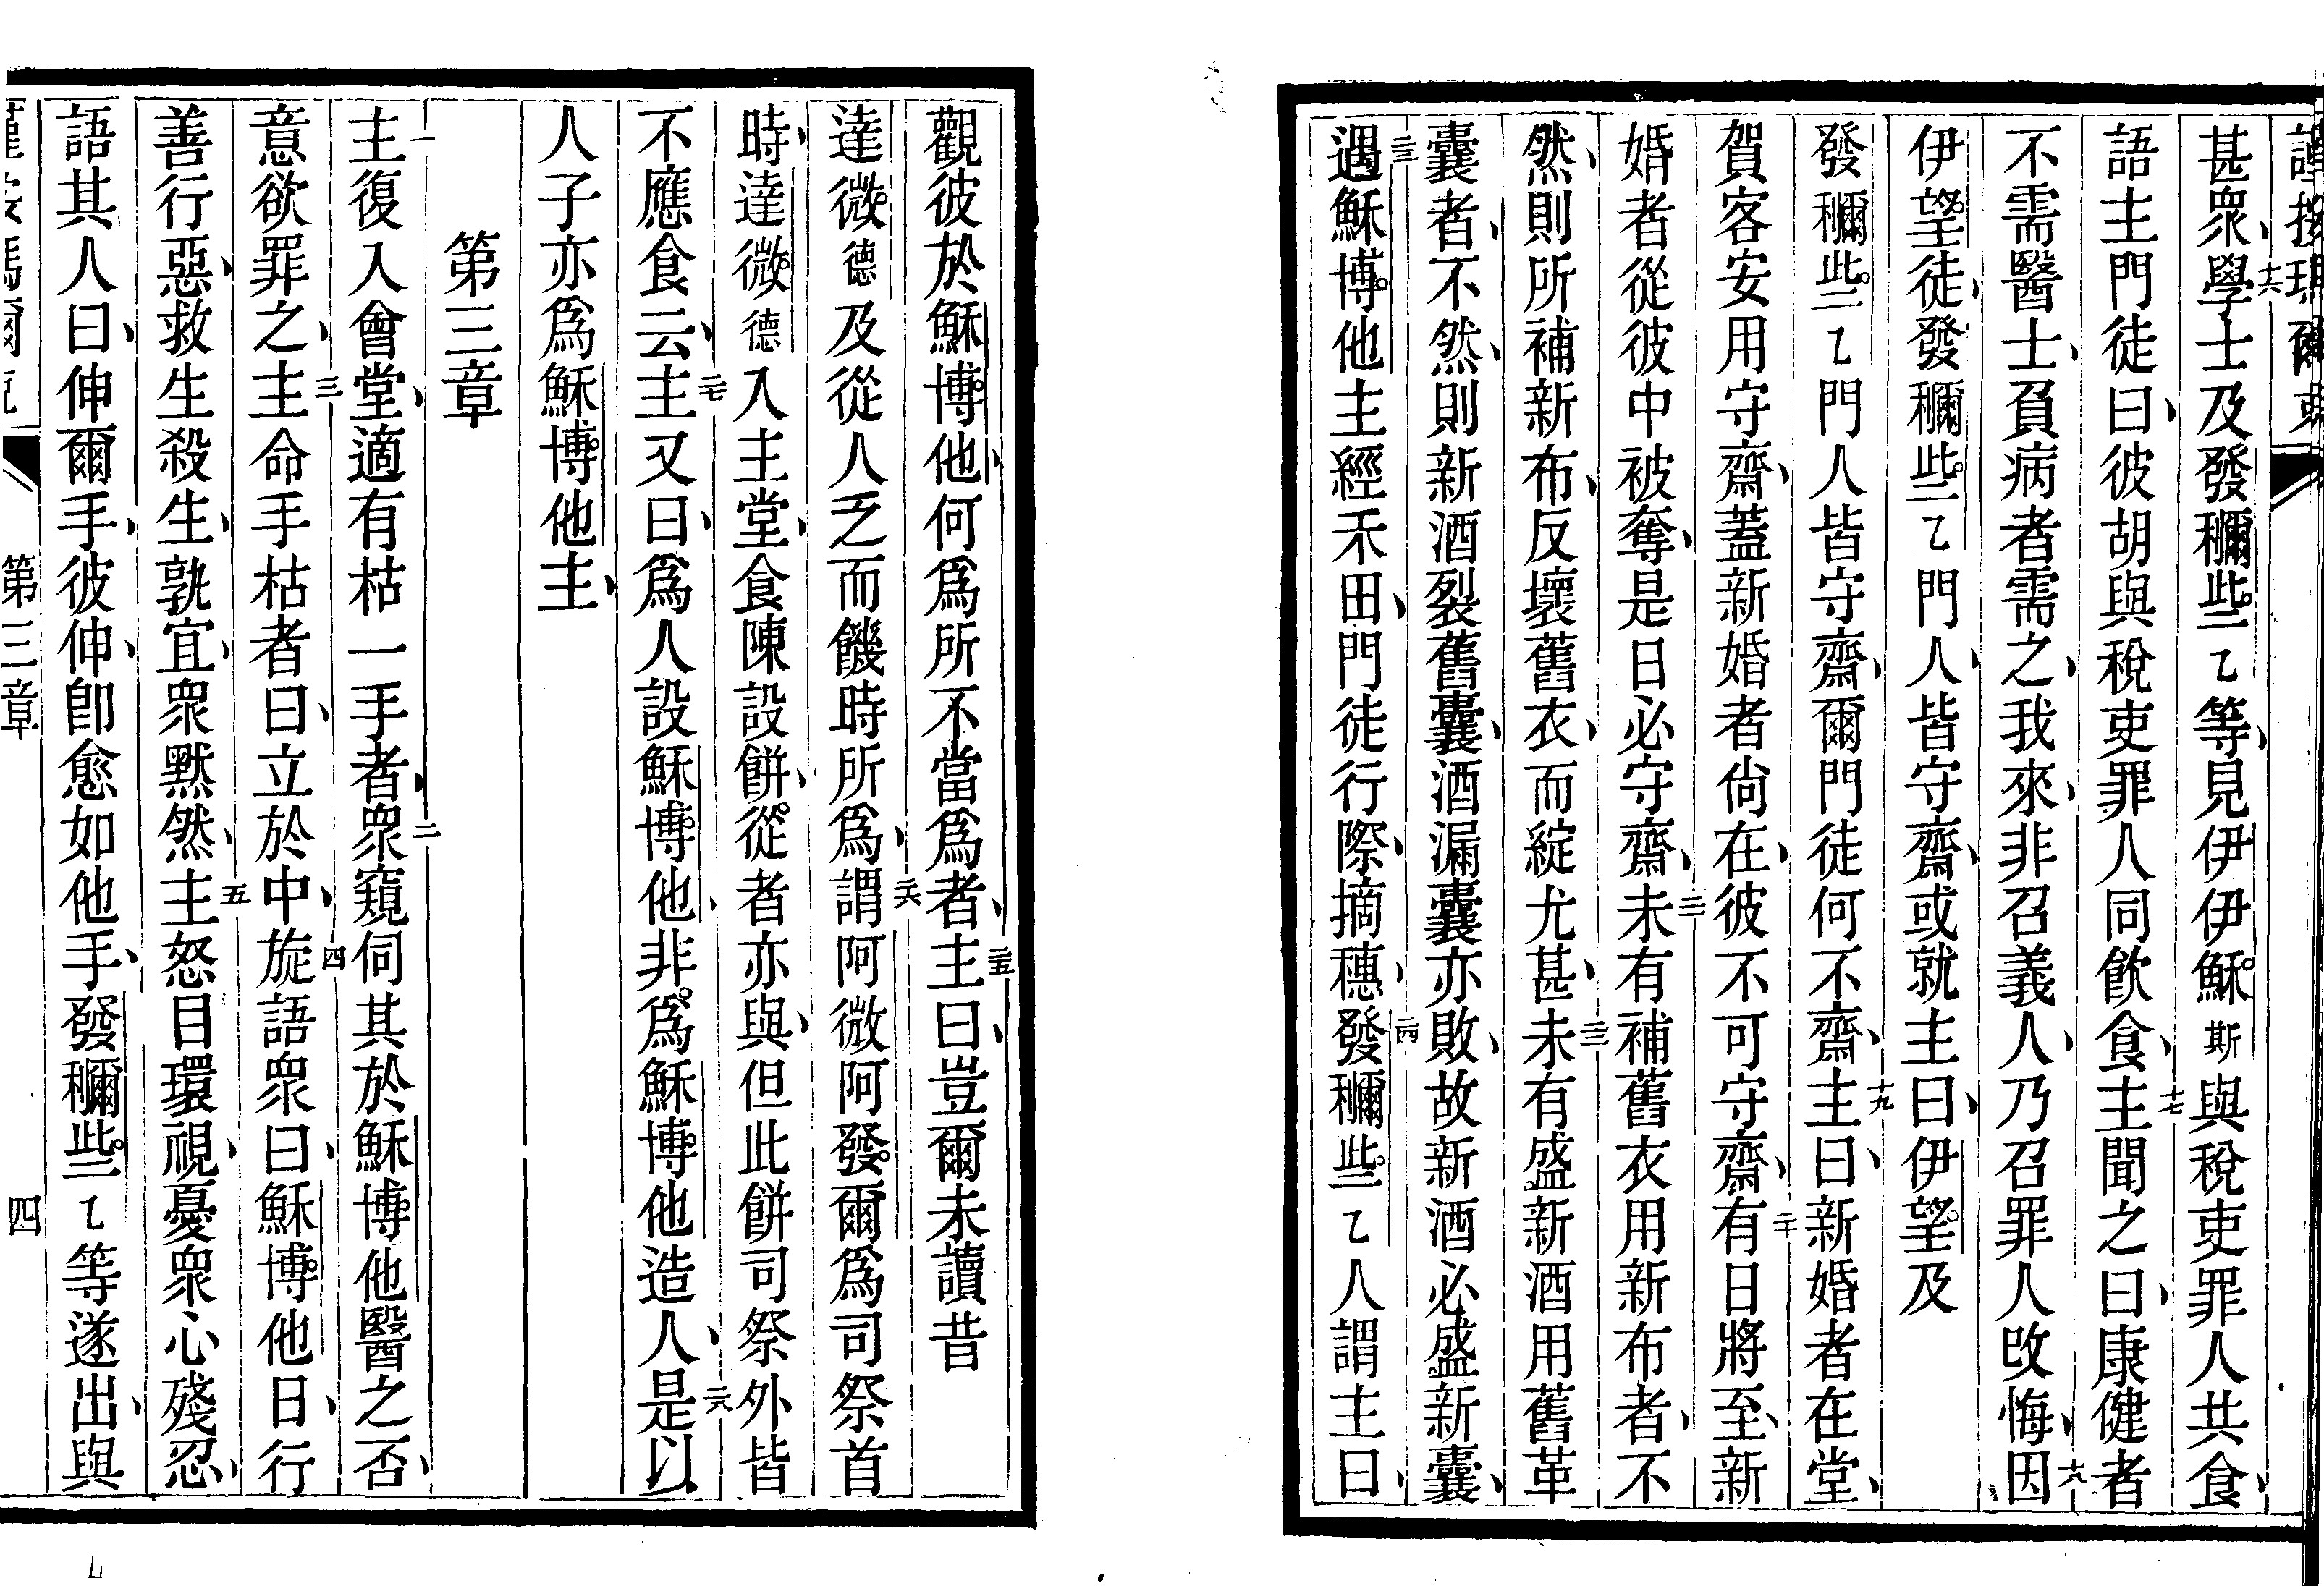 甚眾、學士及發穪些乙等、見伊伊穌斯與稅吏罪人共食、
語主門徒曰、彼胡與稅吏罪人同飲食、主聞之曰、康健者
不需醫士、負病者需之、我來、非召義人、乃召罪人改悔、因
伊望徒、發穪些乙門人、皆守齋、或就主曰、伊望及
發穪些乙門人皆守齋、爾門徒何不齋、主曰、新婚者在堂、
賀客安用守齋、蓋新婚者尙在、彼不可守齋、有日將至、新
婚者從彼中被奪、是日必守齋、未有補舊衣用新布者、不
然、則所補新布、反壞舊衣、而綻尤甚、未有盛新酒用舊革
囊者、不然、則新酒裂舊囊、酒漏囊亦敗、故新酒必盛新囊、
遇穌博他主經禾田、門徒行際、摘穗、發穪些乙人謂主曰、
觀彼於穌博他、何爲所不當爲者、主曰、豈爾未讀昔
達微德及從人乏而饑時所爲、謂阿微阿發爾爲司祭首
時、達微德入主堂、食陳設餅、從者亦與、但此餅司祭外皆
不應食云、主又曰、爲人設穌博他、非爲穌博他造人、是以
人子亦爲穌博他主、
第三章
主復入會堂、適有枯一手者、眾窺伺其於穌博他醫之否、
意欲罪之、主命手枯者曰、立於中、旋語眾曰、穌博他日、行
善行惡、救生殺生、孰宜、眾默然、主怒目環視、憂眾心殘忍、
語其人曰、伸爾手、彼伸、卽愈如他手、發穪些乙等遂出、與
第三章
四